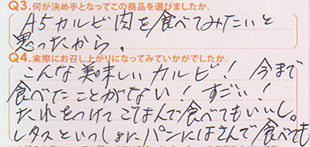 Q3.何が決め手となってこの商品を選びましたか。
A5カルビ肉を食べてみたいと
思ったから。
Q4.実際にお召し上がりになってみていかがでしたか。
こんな美味しいカルビ!今まで
食べたことがない!すごい!
たれをつけてごはんで食べてもいいし。
レタスといっしょにパンにはさんで食べても